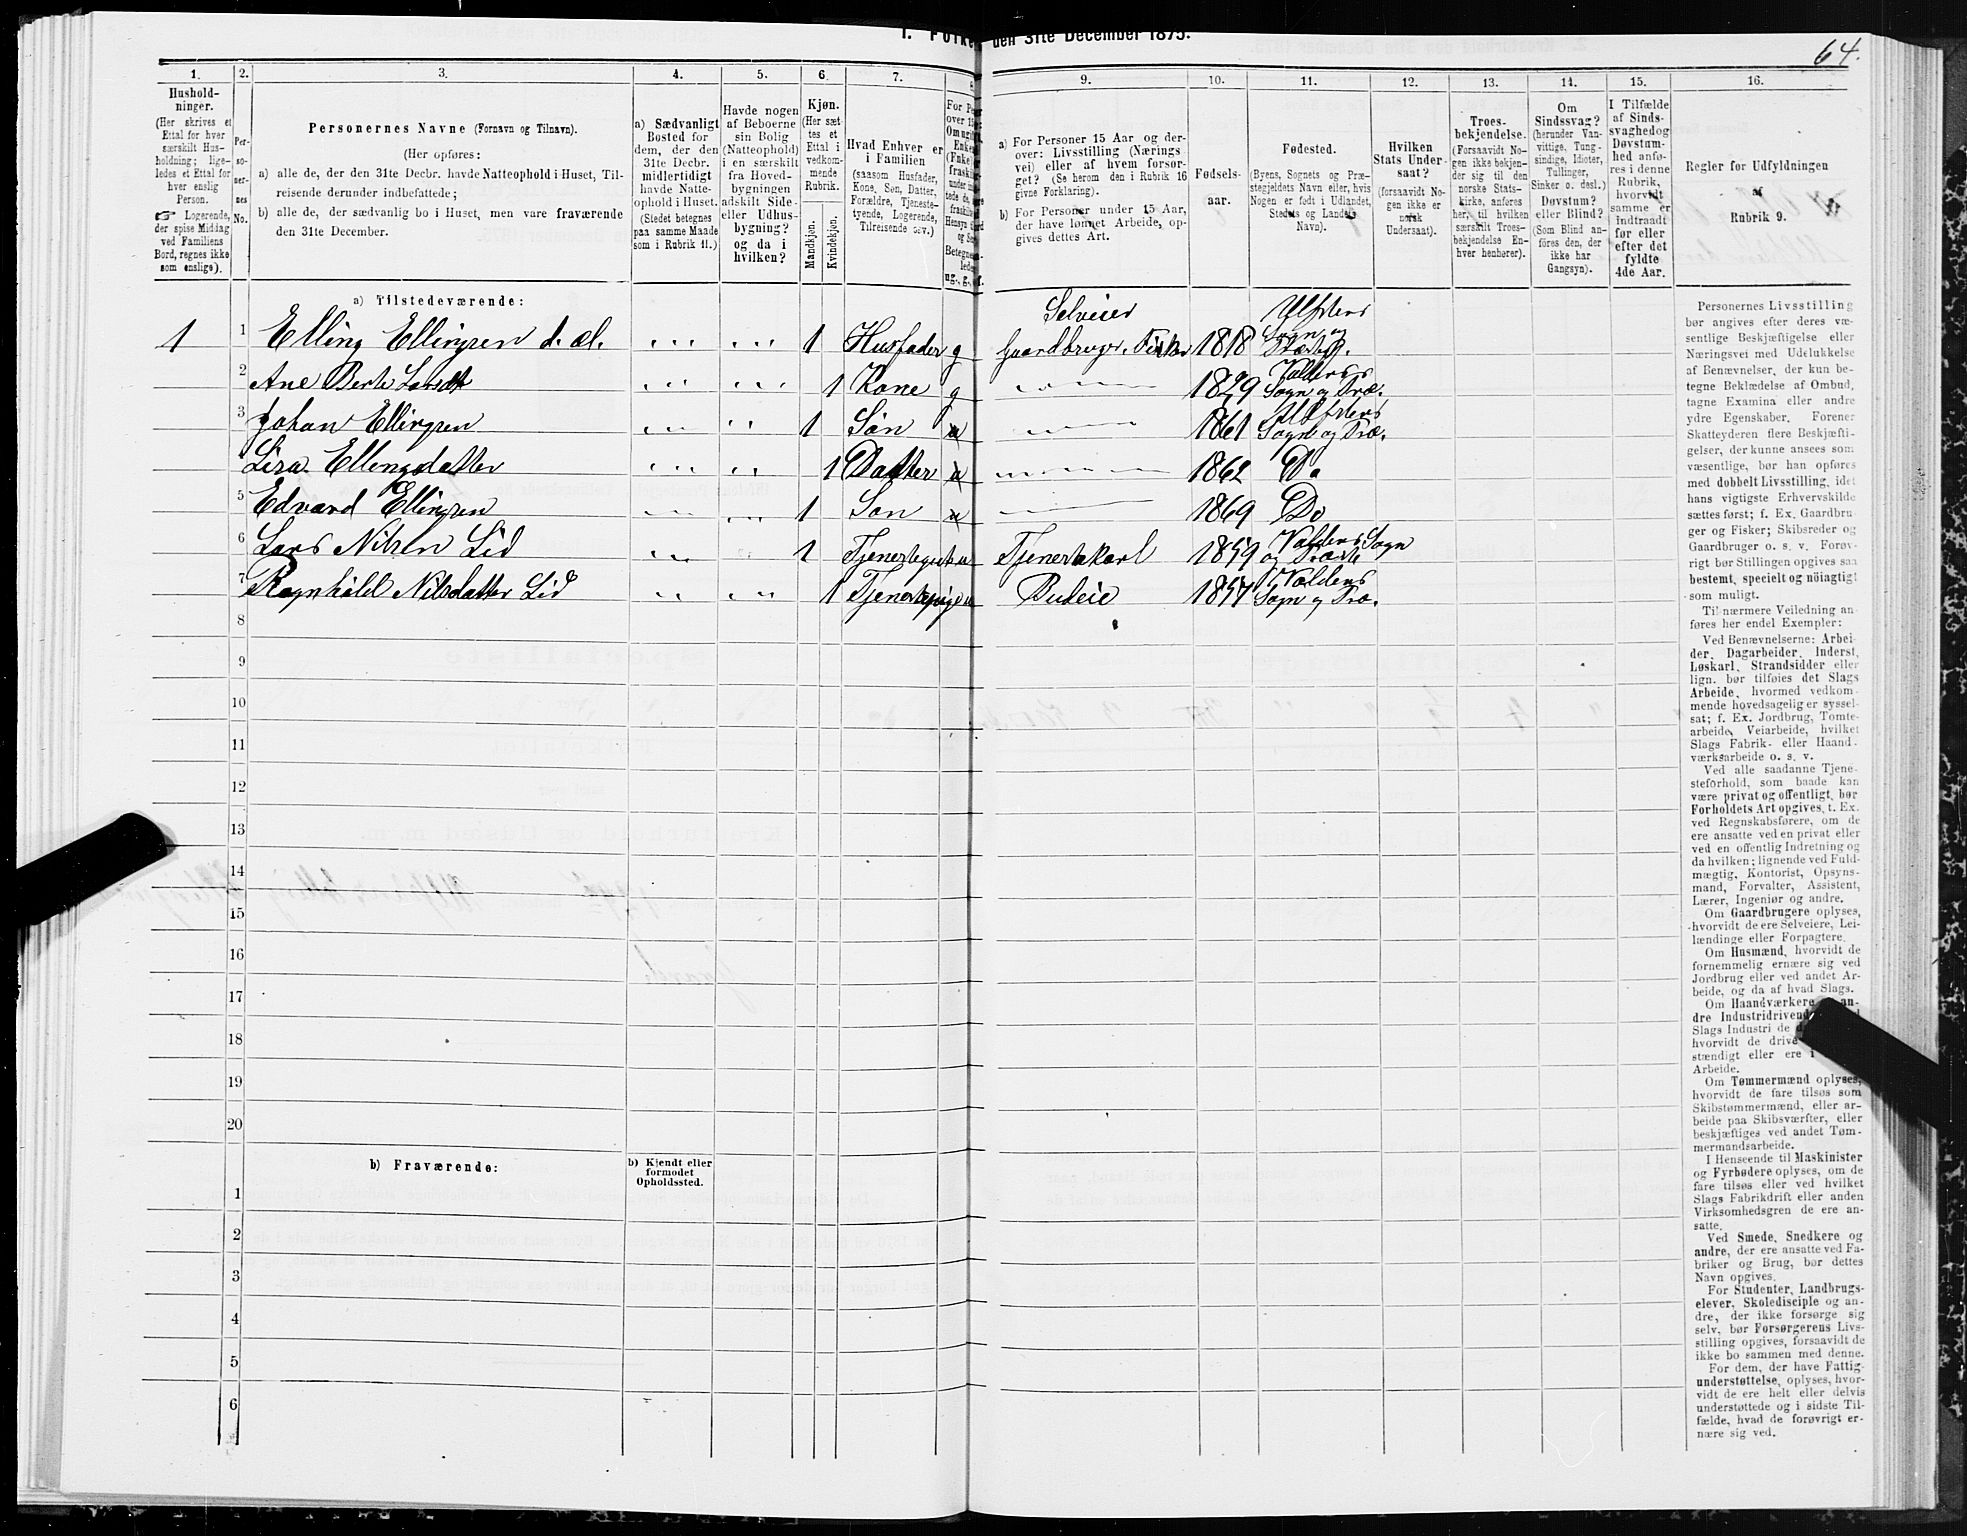 den 31te December 1875.
64.
1. 2. 3. 4. 5. 6. 7. 8. 9. 10. 11. 12. 13. 14. 15. 16.
Hushold-
ninger.
(Her skrives et
Ettal for hver
særskilt Hus-
holdning; lige-
ledes et Ettal for
hver enslig
Person.
☞ Logerende,
der spise Middag
ved Familiens
Bord, regnes ikke
som enslige).
Per-
so-
ner-
nes
No.
Personernes Navne (Fornavn og Tilnavn).
(Her opføres:
a) alle de, der den 31te Decbr. havde Natteophold i Huset, Til-
reisende derunder indbefattede;
b) alle de, der sædvanlig bo i Huset, men vare fraværende
den 31te December.
a) Sædvanligt
Bosted for
dem, der den
31te Decbr.
midlertidigt
havde Natte-
ophold i Huset.
(Stedet betegnes
paa samme Maade
som i Rubrik 11.)
Havde nogen
af Beboerne
sin Bolig
(Natteophold)
i en særskilt
fra Hoved-
bygningen
adskilt Side-
eller Udhus-
bygning?
og da i
hvilken?
Kjøn.
(Her sæt-
tes et
Ettal i
vedkom-
mende
Rubrik.
Mandkjøn.
Kvindekjøn.
Hvad Enhver er
i Familien
(saasom Husfader,
Kone, Søn, Datter,
Forældre, Tjeneste-
tyende, Logerende,
Tilreisende osv.)
a) For Personer 15 Aar og der-
over: Livsstilling (Nærings
vei) eller af hvem forsør-
get? (Se herom den i Rubrik 16
givne Forklaring).
b) For Personer under 15 Aar,
der have lønnet Arbeide, op-
gives dettes Art.
Fødsels-
aar.
Fødested.
(Byens, Sognets og Præ-
stegjeldets Navn eller, hvis
Nogen er født i Udlandet,
Stedets og Landets
Navn).
Hvilken
Stats Under-
saat?
(forsaavidt No-
gen ikke er
norsk
Undersaat).
Troes-
bekjendelse.
(Forsaavidt No-
gen ikke bekjen-
der sig til den
norske Stats-
kirke, anføres
her, til hvilken
særskilt Troes-
bekjendelse En-
hver henhører).
Om
Sindssvag?
(herunder Van-
vittige, Tung-
sindige, Idioter,
Tullinger,
Sinker o. desl.)
Døvstum?
eller Blind?
(Som Blind an-
føres den, der
ikke har
Gangsyn).
I Tilfælde
af Sinds-
svaghedog
Døvstum-
hed anfø-
res i denne
Rubrik,
hvorvidt
samme er
Indtraadt
før eller
efter det
fyldte
4de Aar.
Regler før Udfyldningen
af
Rubrik 9.
a) Tilstedeværende:
1 1 Elling Ellingsen d. æl. 1 Husfader g Selveier Gaardbruger. Fisker 1818 Ulfstens Sogn og Præsteg.
2 Ane Berte Larsdt 1 Kone g 1829 Voldens Sogn og Præ.
3 Johan Ellingsen 1 Søn u 1861 Ulfstens Sogn og Præ.
Lisa Ellengsdatter 1 Datter u 1862 Do
5 Edvard Ellingsen 1 Søn u 1869 Do
6 Lars Nilsen Lid 1 Tjenestegut u Tjenestekarl 1859 Voldens Sogn og Præste
7 Ragnhild Nilsdatter Lid 1 Tjenestepige u Budeie 1857 Voldens Sogn og Præ.
8
9
10
11
12
13
14
15
16
17
18
19
20
b) Fraværende:
b) Kjendt eller
formodet
Opholdssted.
1
2
3
4
5
6
Personernes Livsstilling
bør angives efter deres væ-
sentlige Beskjæftigelse eller
Næringsvei med Udelukkelse
af Benævnelser, der kun be-
tegne Beklædelse af Ombud,
tagne Examina eller andre
ydre Egenskaber. Forener
Skatteyderen flere Beskjæfti-
gelser, der kunne ansees som
væsentlige, bør han opføres
med dobbelt Livsstilling, idet
hans vigtigste Erhvervskilde
sættes først; f. Ex. Gaardbru
ger og Fisker; Skibsreder og
Gaardbruger o. s. v. Forøv-
rigt bør Stillingen opgives saa
bestemt, specielt og nöiagtigt
som muligt.
Til nærmere Veiledning an-
føres her endel Exempler:
Ved Benævnelserne: Arbei-
der, Dagarbeider, Inderst,
Løskarl, Strandsidder eller
lign. bør tilføies det Slags
Arbeide, hvormed vedkom-
mende hovedsagelig er syssel-
sat; f. Ex. Jordbrug, Tomte-
arbeide, Veiarbeide, hvilket
Slags Fabrik- eller Haand-
værksarbeide o. s. v.
Ved alle saadanne Tjene-
steforhold, som baade kan
være privat og offentligt, bør
Forholdets Art opgives, t. Ex.
ved Regnskabsførere, om de
ere ansatte ved en privat eller
ved en offentlig Indretning og
da hvilken; lignende ved Fuld-
mægtig, Kontorist, Opsyns-
mand, Forvalter, Assistent,
Lærer, Ingeniør og andre.
Om Gaardbrugere oplyses,
hvorvidt de ere Selveiere, Lei-
lændinge eller Forpagtere.
Om Husmænd, hvorvidt de
fornemmelig ernære sig ved
Jordbrug eller ved andet Ar-
beide, og da af hvad Slags.
Om Haandværkere an-
dre Industridrivend
Slags Industri de d
hvorvidt de drive
stændigt eller ere i
Arbeide.
Om Tømmermænd oplyses,
hvorvidt de fare tilsøs som
Skibstømmermænd, eller ar-
beide paa Skibsværfter, eller
beskjæftiges ved andet Tøm-
mermandsarbeide.
I Henseende til Maskinister
og Fyrbødere oplyses, om de
fare tilsøs eller ved hvilket
Slags Fabrikdrift eller anden
Virksomhedsgren de ere an-
satte.
Ved Smede, Snedkere og
andre, der ere ansatte ved Fa-
briker og Brug, bør dettes
Navn opgives.
For Studenter, Landbrugs-
elever, Skoledisciple og an-
dre, der ikke forsørge sig
selv, bør Forsørgerens Livs-
stilling opgives, forsaavidt de
ikke bo sammen med denne.
For dem, der have Fattig-
understøttelse, oplyses, hvor-
vidt de ere helt eller delvis
understøttede og i sidste Til-
fælde, hvad de forøvrigt er-
nære sig ved.